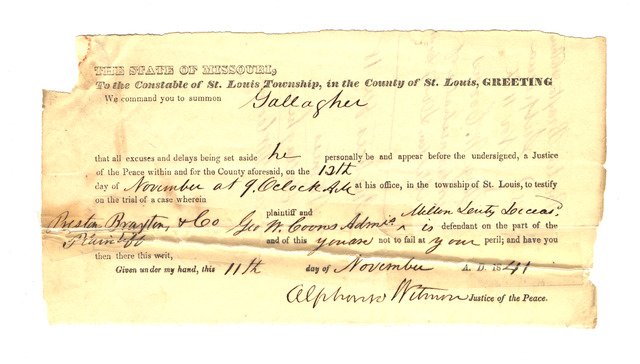 THE STATE OF MISSOURI,
To the Constable of St. Louis Township, in the County of St. Louis, GREETING
We command you to summon Gallagher
that all excuses and delays being set aside he personally be and appear before the undersigned, a Justice
of the Peace within and for the County aforesaid, on the 12th
day of November at 9. Oclock AM at his office, in the township of St. Louis, to testify
on the trial of a case wherein
Preston Braxton, & Co plaintiff and Geo W. Coons Admr. Milton Deceasd.
Plaintiff is defendant on the part of the
and of this you are not to fail at your peril; and have you
then there this writ,
Given under my hand, this 11th day of November A. D. 1841
Alphonso Wetmore Justice of the Peace.